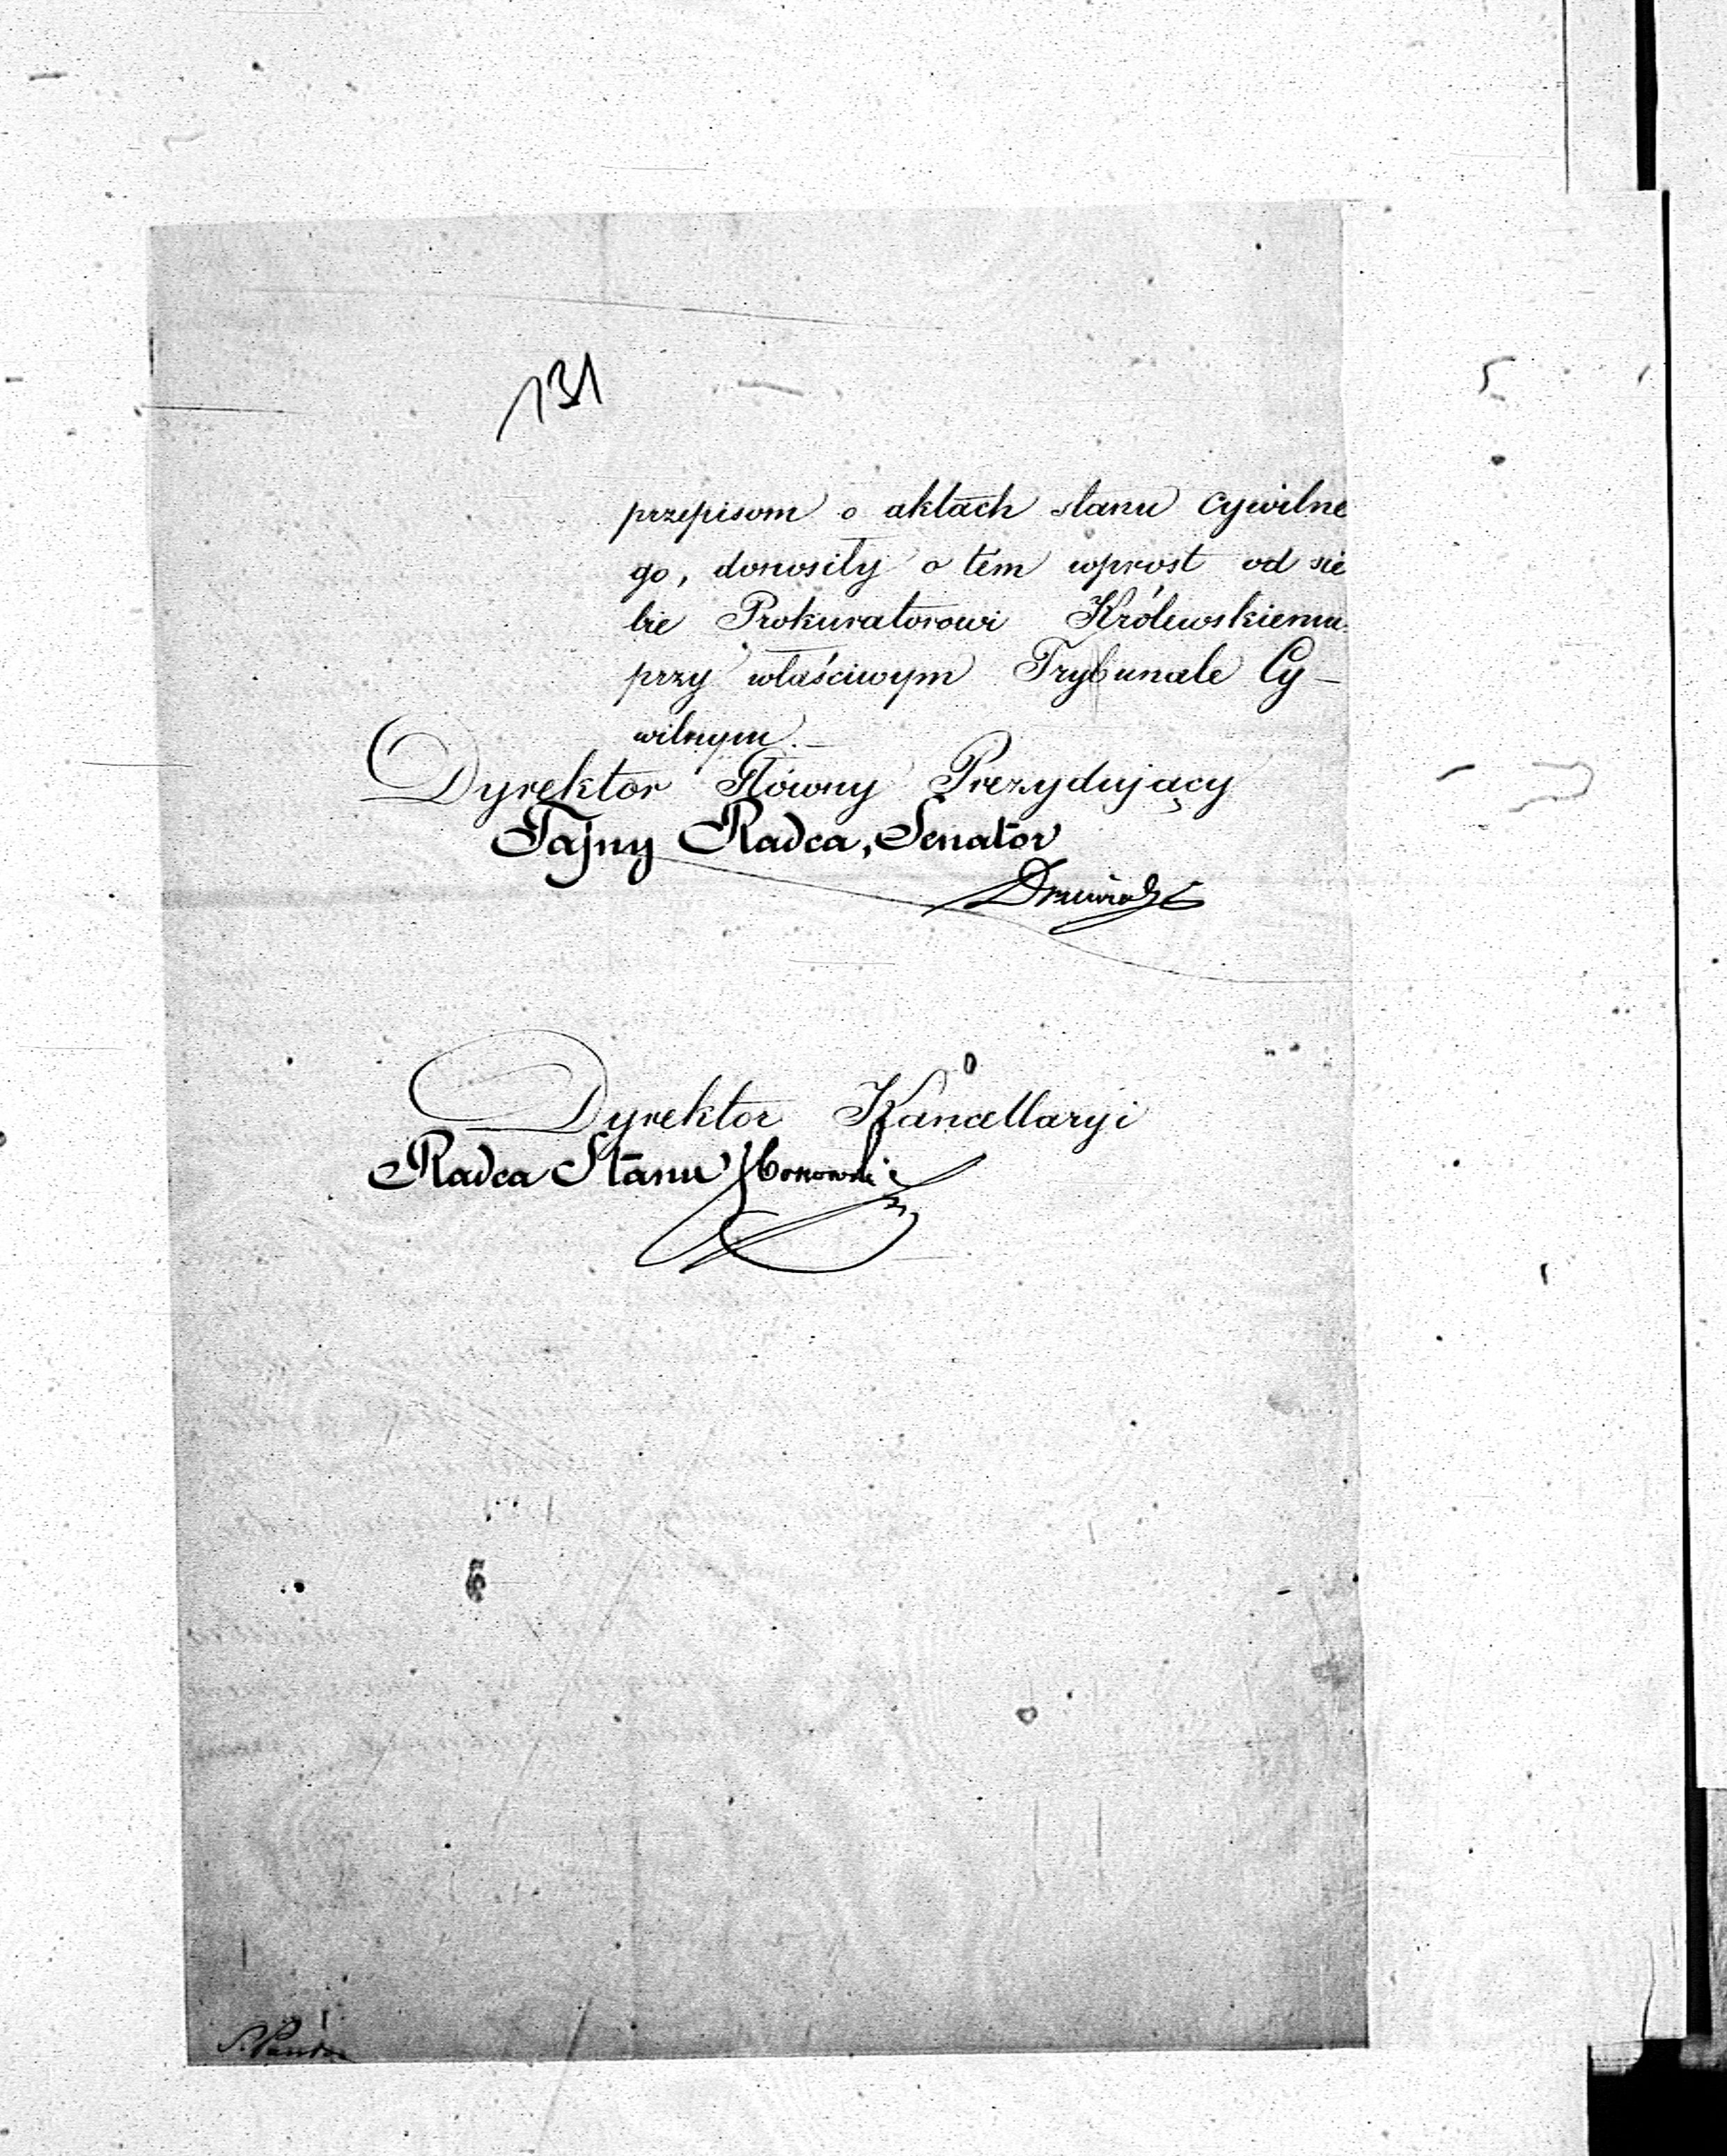 131
przepisom o aktach stanu cywilne
go, donosiły o tém wprost od sie
bie Prokuratorowi Królewskiemu
przy właściwym Trybunale Cy-
wilnym.
Dyrektor Główny Prezydujący
Tajny Radca, Senator
Dyrektor Kancellaryi
Radca Stanu